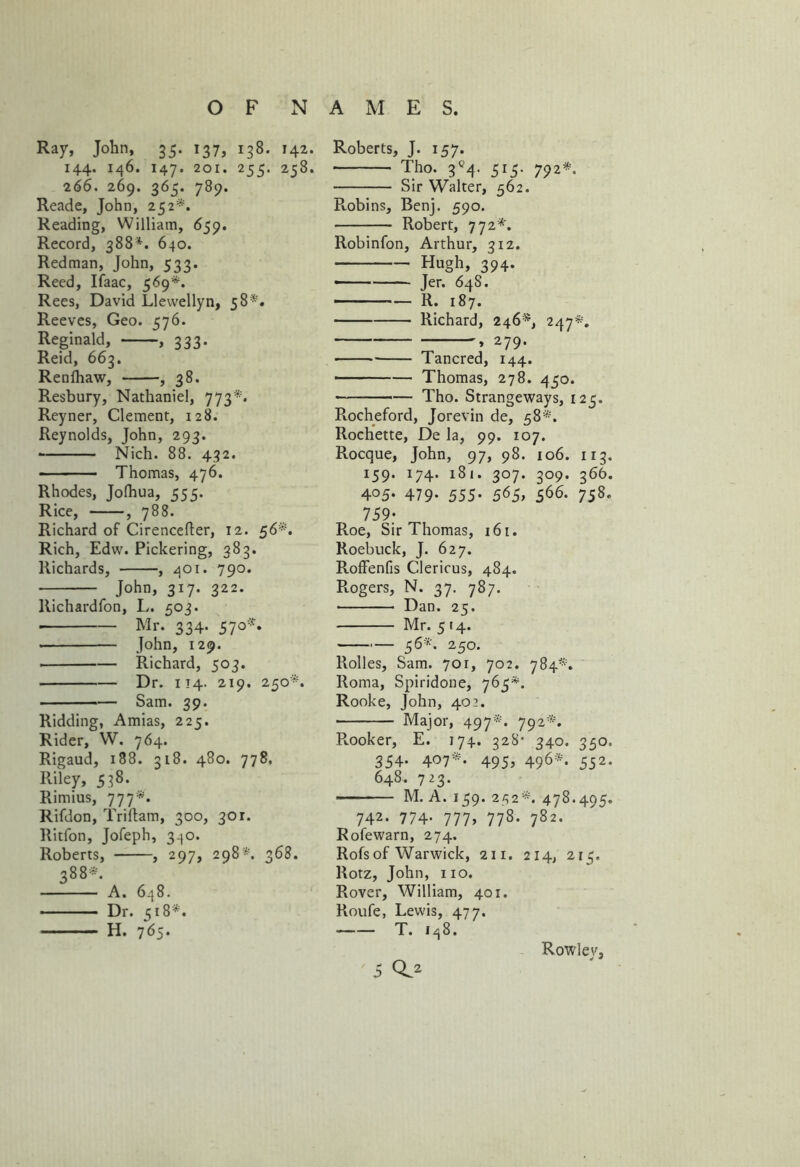 OF NAMES.
Ray, John, 35. 137, 138. 142.
144. 146. 147. 201. 255. 258.
266. 269. 365. 789.
Reade, John, 252*.
Reading, William, 659.
Record, 388*. 640.
Redman, John, 533.
Reed, Iſaac, 569*.
Rees, David Llewellyn, 58*.
Reeves, Geo. 576.
Reginald, ——, 333.
Reid, 663.
Renſhaw, ——, 38.
Resbury, Nathaniel, 773*.
Reyner, Clement, 128.
Reynolds, John, 293.
—— Nich. 88. 432.
—— Thomas, 476.
Rhodes, Joſhua, 555.
Rice, ——, 788.
Richard of Cirenceſter, 12. 56*.
Rich, Edw. Pickering, 383.
Richards, ——, 401. 790.
—— John, 317. 322.
Richardſon, L. 503.
—— Mr. 334. 570*.
—— John, 129.
—— Richard, 503.
—— Dr. 114. 219. 250*.
—— Sam. 39.
Ridding, Amias, 225.
Rider, W. 764.
Rigaud, 188. 318. 480. 778,
Riley, 538.
Rimius, 777*.
Riſdon, Triſtam, 300, 301.
Ritſon, Joſeph, 340.
Roberts, ——, 297, 298*. 368.
388*.
—— A. 648.
—— Dr. 518*.
—— H. 765.
Roberts, J. 157.
—— Tho. 394. 515. 792*.
—— Sir Walter, 562.
Robins, Benj. 590.
—— Robert, 772*.
Robinſon, Arthur, 312.
—— Hugh, 394.
—— Jer. 648.
—— R. 187.
—— Richard, 246*, 247*.
—— ——, 279.
—— Tancred, 144.
—— Thomas, 278. 450.
—— Tho. Strangeways, 125.
Rocheford, Jorevin de, 58*.
Rochette, De la, 99. 107.
Rocque, John, 97, 98. 106. 113.
159. 174. 181. 307. 309. 366.
405. 479. 555. 565, 566. 758.
759.
Roe, Sir Thomas, 161.
Roebuck, J. 627.
Roffenſis Clericus, 484.
Rogers, N. 37. 787.
—— Dan. 25.
—— Mr. 514.
—— 56*. 250.
Rolles, Sam. 701, 702. 784*.
Roma, Spiridone, 765*.
Rooke, John, 402.
—— Major, 497*. 792*.
Rooker, E. 174. 328. 340. 350.
354. 407*. 495, 496*. 552.
648. 723.
—— M. A. 159. 252*. 478. 495.
742. 774. 777, 778. 782.
Roſewarn, 274.
Roſs of Warwick, 211. 214, 215.
Rotz, John, 110.
Rover, William, 401.
Rouſe, Lewis, 477.
—— T. 148.
5 Q 2
Rowley,